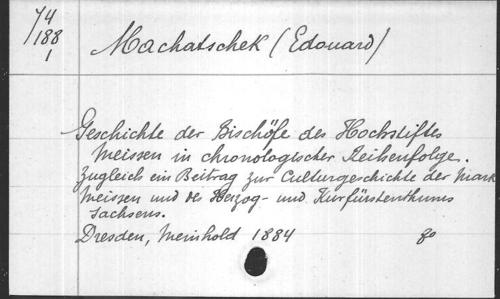 74
188
1
Machatschek (Edouard)
Geschichte der Bischöfe des Hochstiftes
Meissen in chronologischer Reihenfolge.
Zugleich ein Beitrag zur Culturgeschichte der Mark
Meissen und des Herzog- und Kurfürstenthums
Sachsens.
Dresden, Meinhold 1884 8o